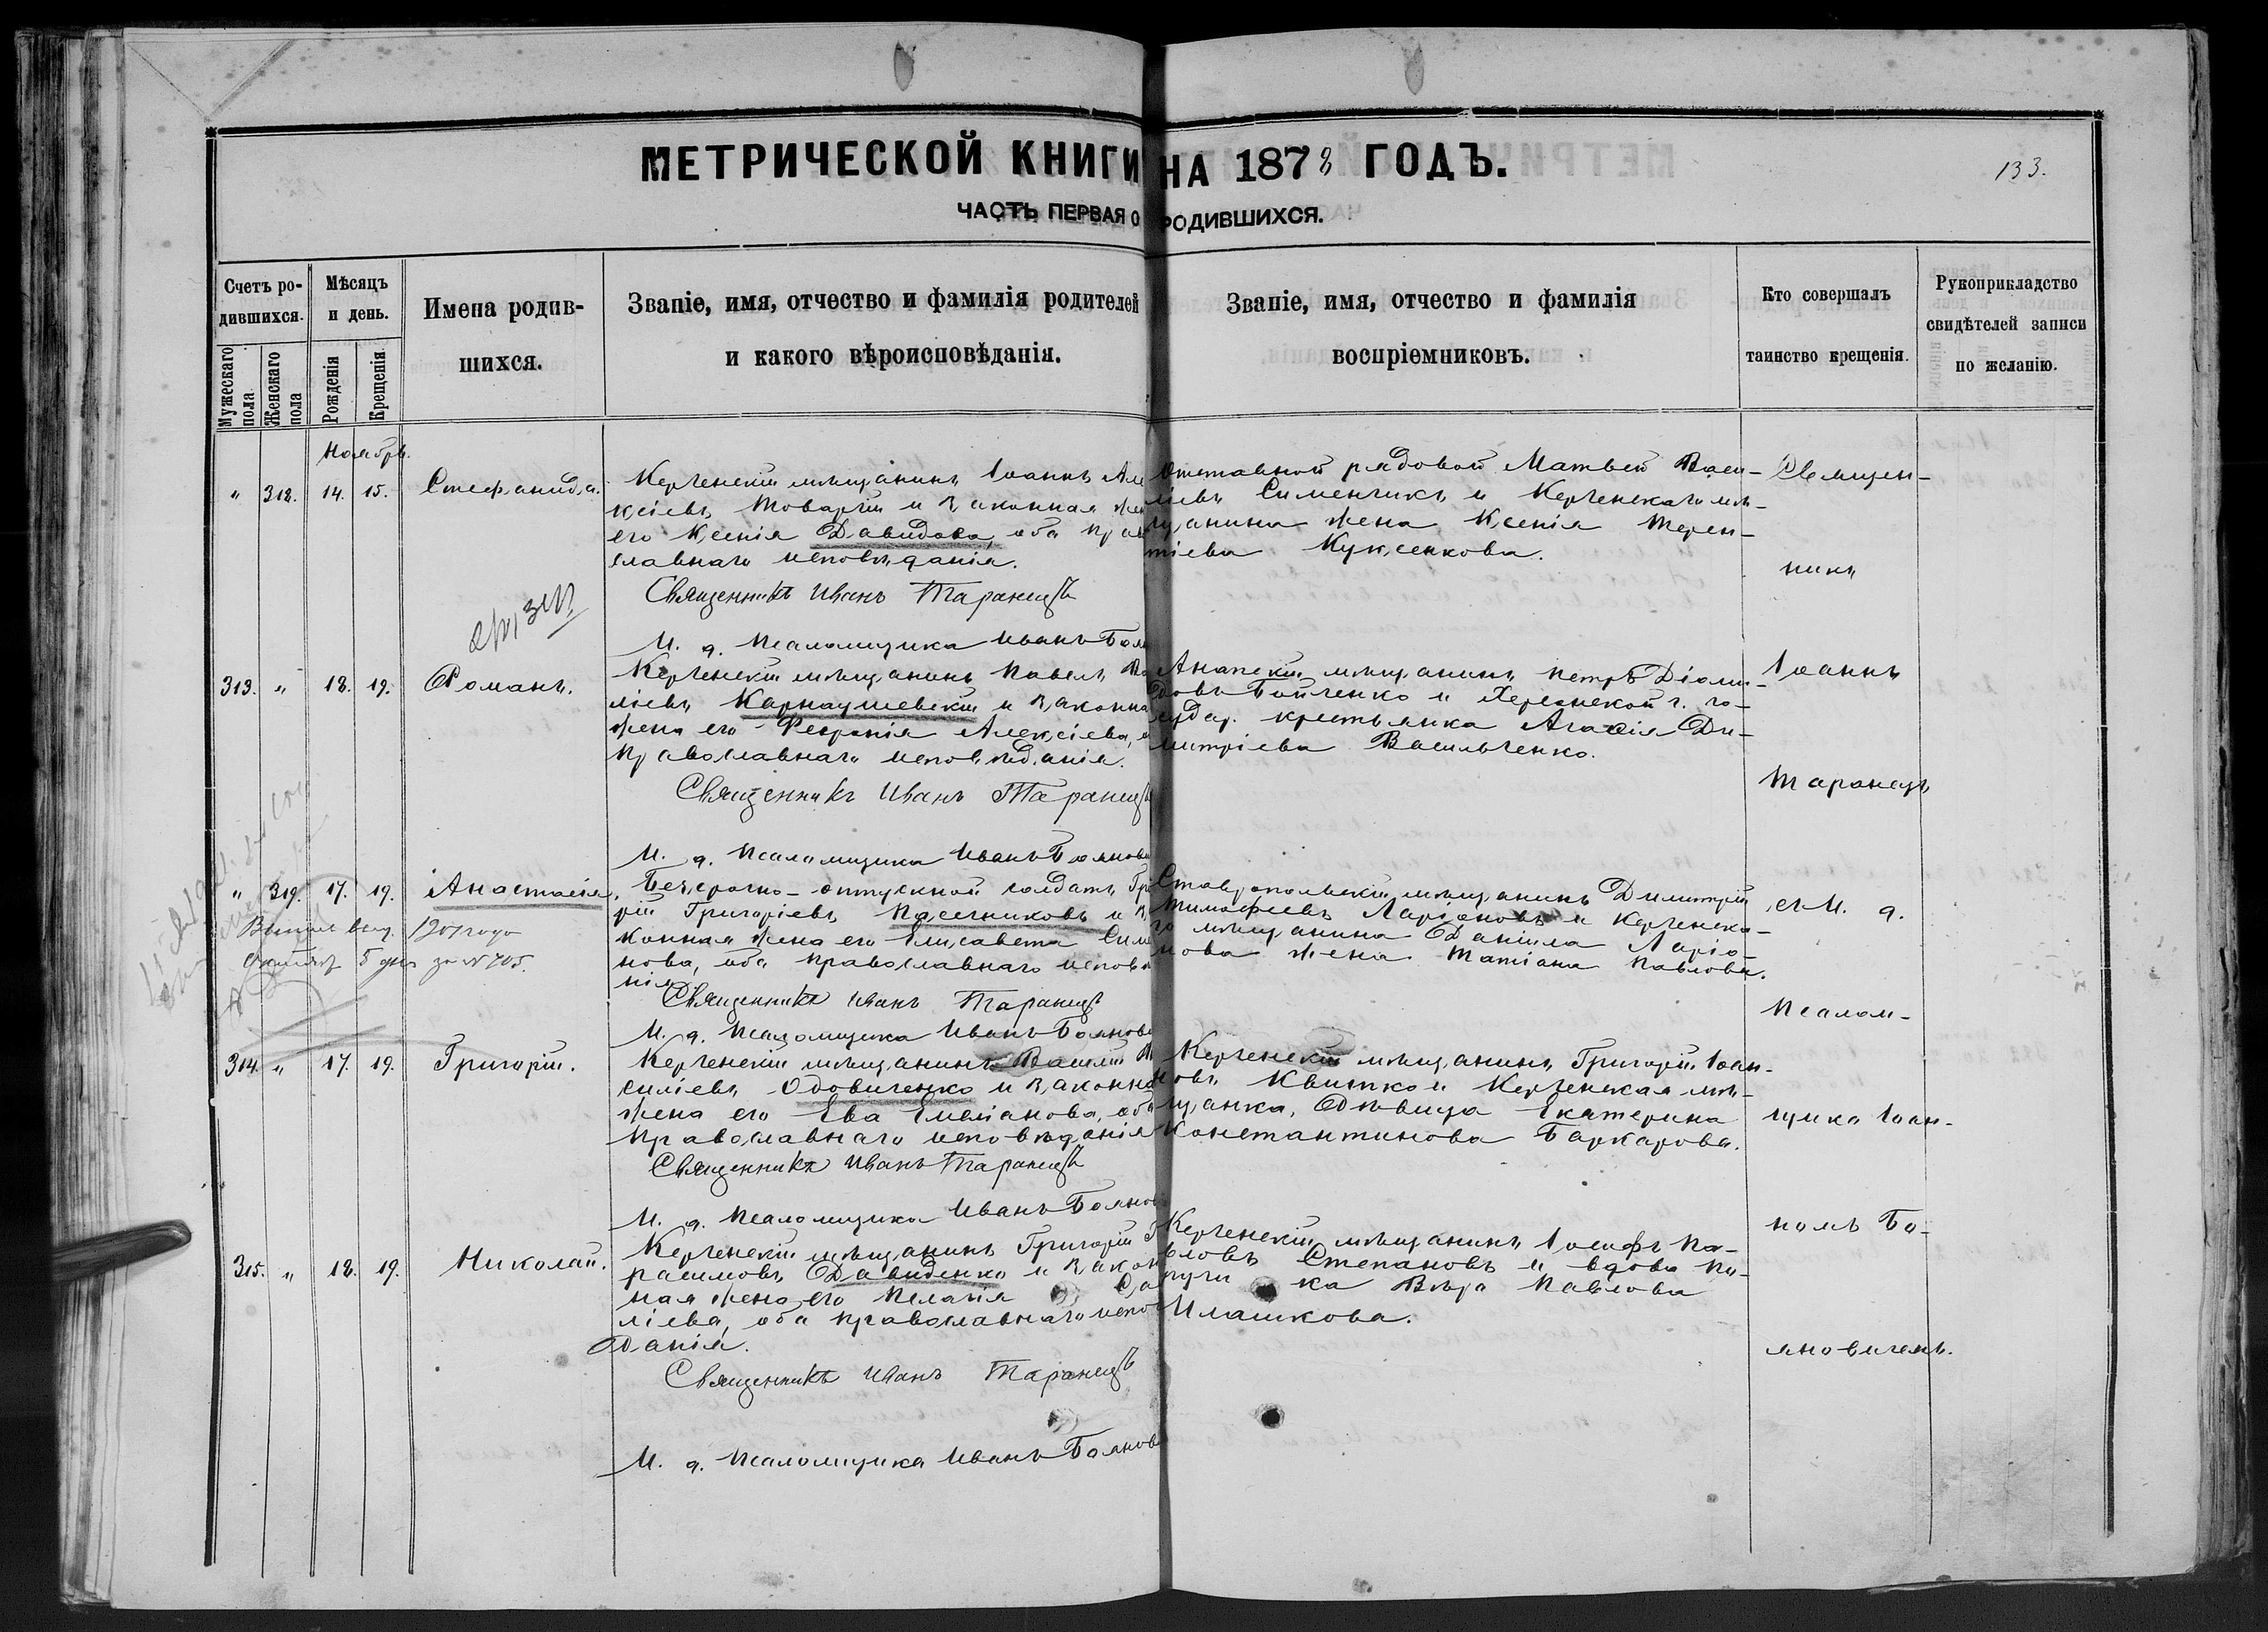 МЕТРИЧЕСКОЙ КНИГИ НА 1878 ГОДЪ.
133.
ЧАСТЬ ПЕРВАЯ О РОДИВШИХСЯ.
Счетъ ро-
дившихся.
Мужескаго пола
Женскаго пола
Мѣсяцъ
и день.
Рожденія
Крещенія
Имена родив-
шихся.
Званіе, имя, отчество и фамилія родителей
и какого вѣроисповѣданія.
Званіе, имя, отчество и фамилія
воспріемниковъ.
Кто совершалъ
таинство крещенія.
Рукоприкладство
свидѣтелей записи
по желанію.
Ноября.
" 318. 14. 15. Стефанида.
Керченскій мѣщанинъ Іоаннъ Але
ксіевъ Товаргій и законная жен
его Ксенія Давидова, оба прав
славнаго исповѣданія.
Священникъ Иванъ Таранецъ
И. д. Псаломщика Иванъ Боян
Отставной рядовой Матвей Васи-
ліевъ Сименчикъ и Керченскаго мѣ-
щанина жена Ксенія Терен-
тіева Куксенкова.
313. " 18. 19. Романъ.
Керченскій мѣщанинъ Павелъ Ва
ліевъ Карнаушевскій и законна
жена его Февронія Алексіева, о
православнаго исповѣданія.
Священникъ Иванъ Таранецъ
И. д. Псаломщика Иванъ Боянови
Анапскій мѣщанинъ Петръ Діоми-
довъ Бойченко и Херсонской г. го-
судар. крестьянка Агафія Ди-
митріева Васильченко.
" 319. 17. 19. Анастасія
Безсрочно-отпускной солдатъ Гри
рій Григоріевъ Пасечниковъ и за
конная жена его Елисавета Сим
нова, оба православнаго исповѣ
нія.
Священникъ Иванъ Таранецъ
И. д. Псаломщика Иванъ Боянови
Ставропольскій мѣщанинъ Димитрій
Тимофеевъ Ларіоновъ и Керченска-
го мѣщанина Даніила Ларіо-
нова жена Татіана Павлова.
1901 года
5 дня за № 705.
314. " 17. 19. Григорій.
Керченскій мѣщанинъ Василій Ва
силіевъ Одовиченко и законна
жена его Ева Емеліанова, оба
православнаго исповѣданія
Священникъ Иванъ Таранецъ
И. д. Псаломщика Иванъ Боянов
Керченскій мѣщанинъ Григорій Іоан-
новъ Квитко и Керченская мѣ-
щанка, дѣвица Екатерина
Константинова Баркарова.
315. " 18. 19. Николай.
Керченскій мѣщанинъ Григорій Г
расимовъ Давиденко и закон
ная жена его Пелагія Са
ліева, оба православнаго испов
данія.
Священникъ Иванъ Таранецъ
И. д. Псаломщика Иванъ Боянов
Керченскій мѣщанинъ Іосифъ Па-
вловъ Степановъ и вдова По-
ручика Вѣра Павлова
Илашкова.
Священ-
никъ
Іоаннъ
Таранецъ
съ И. д.
Псалом-
щика Іоан-
номъ Бо-
яновичемъ.